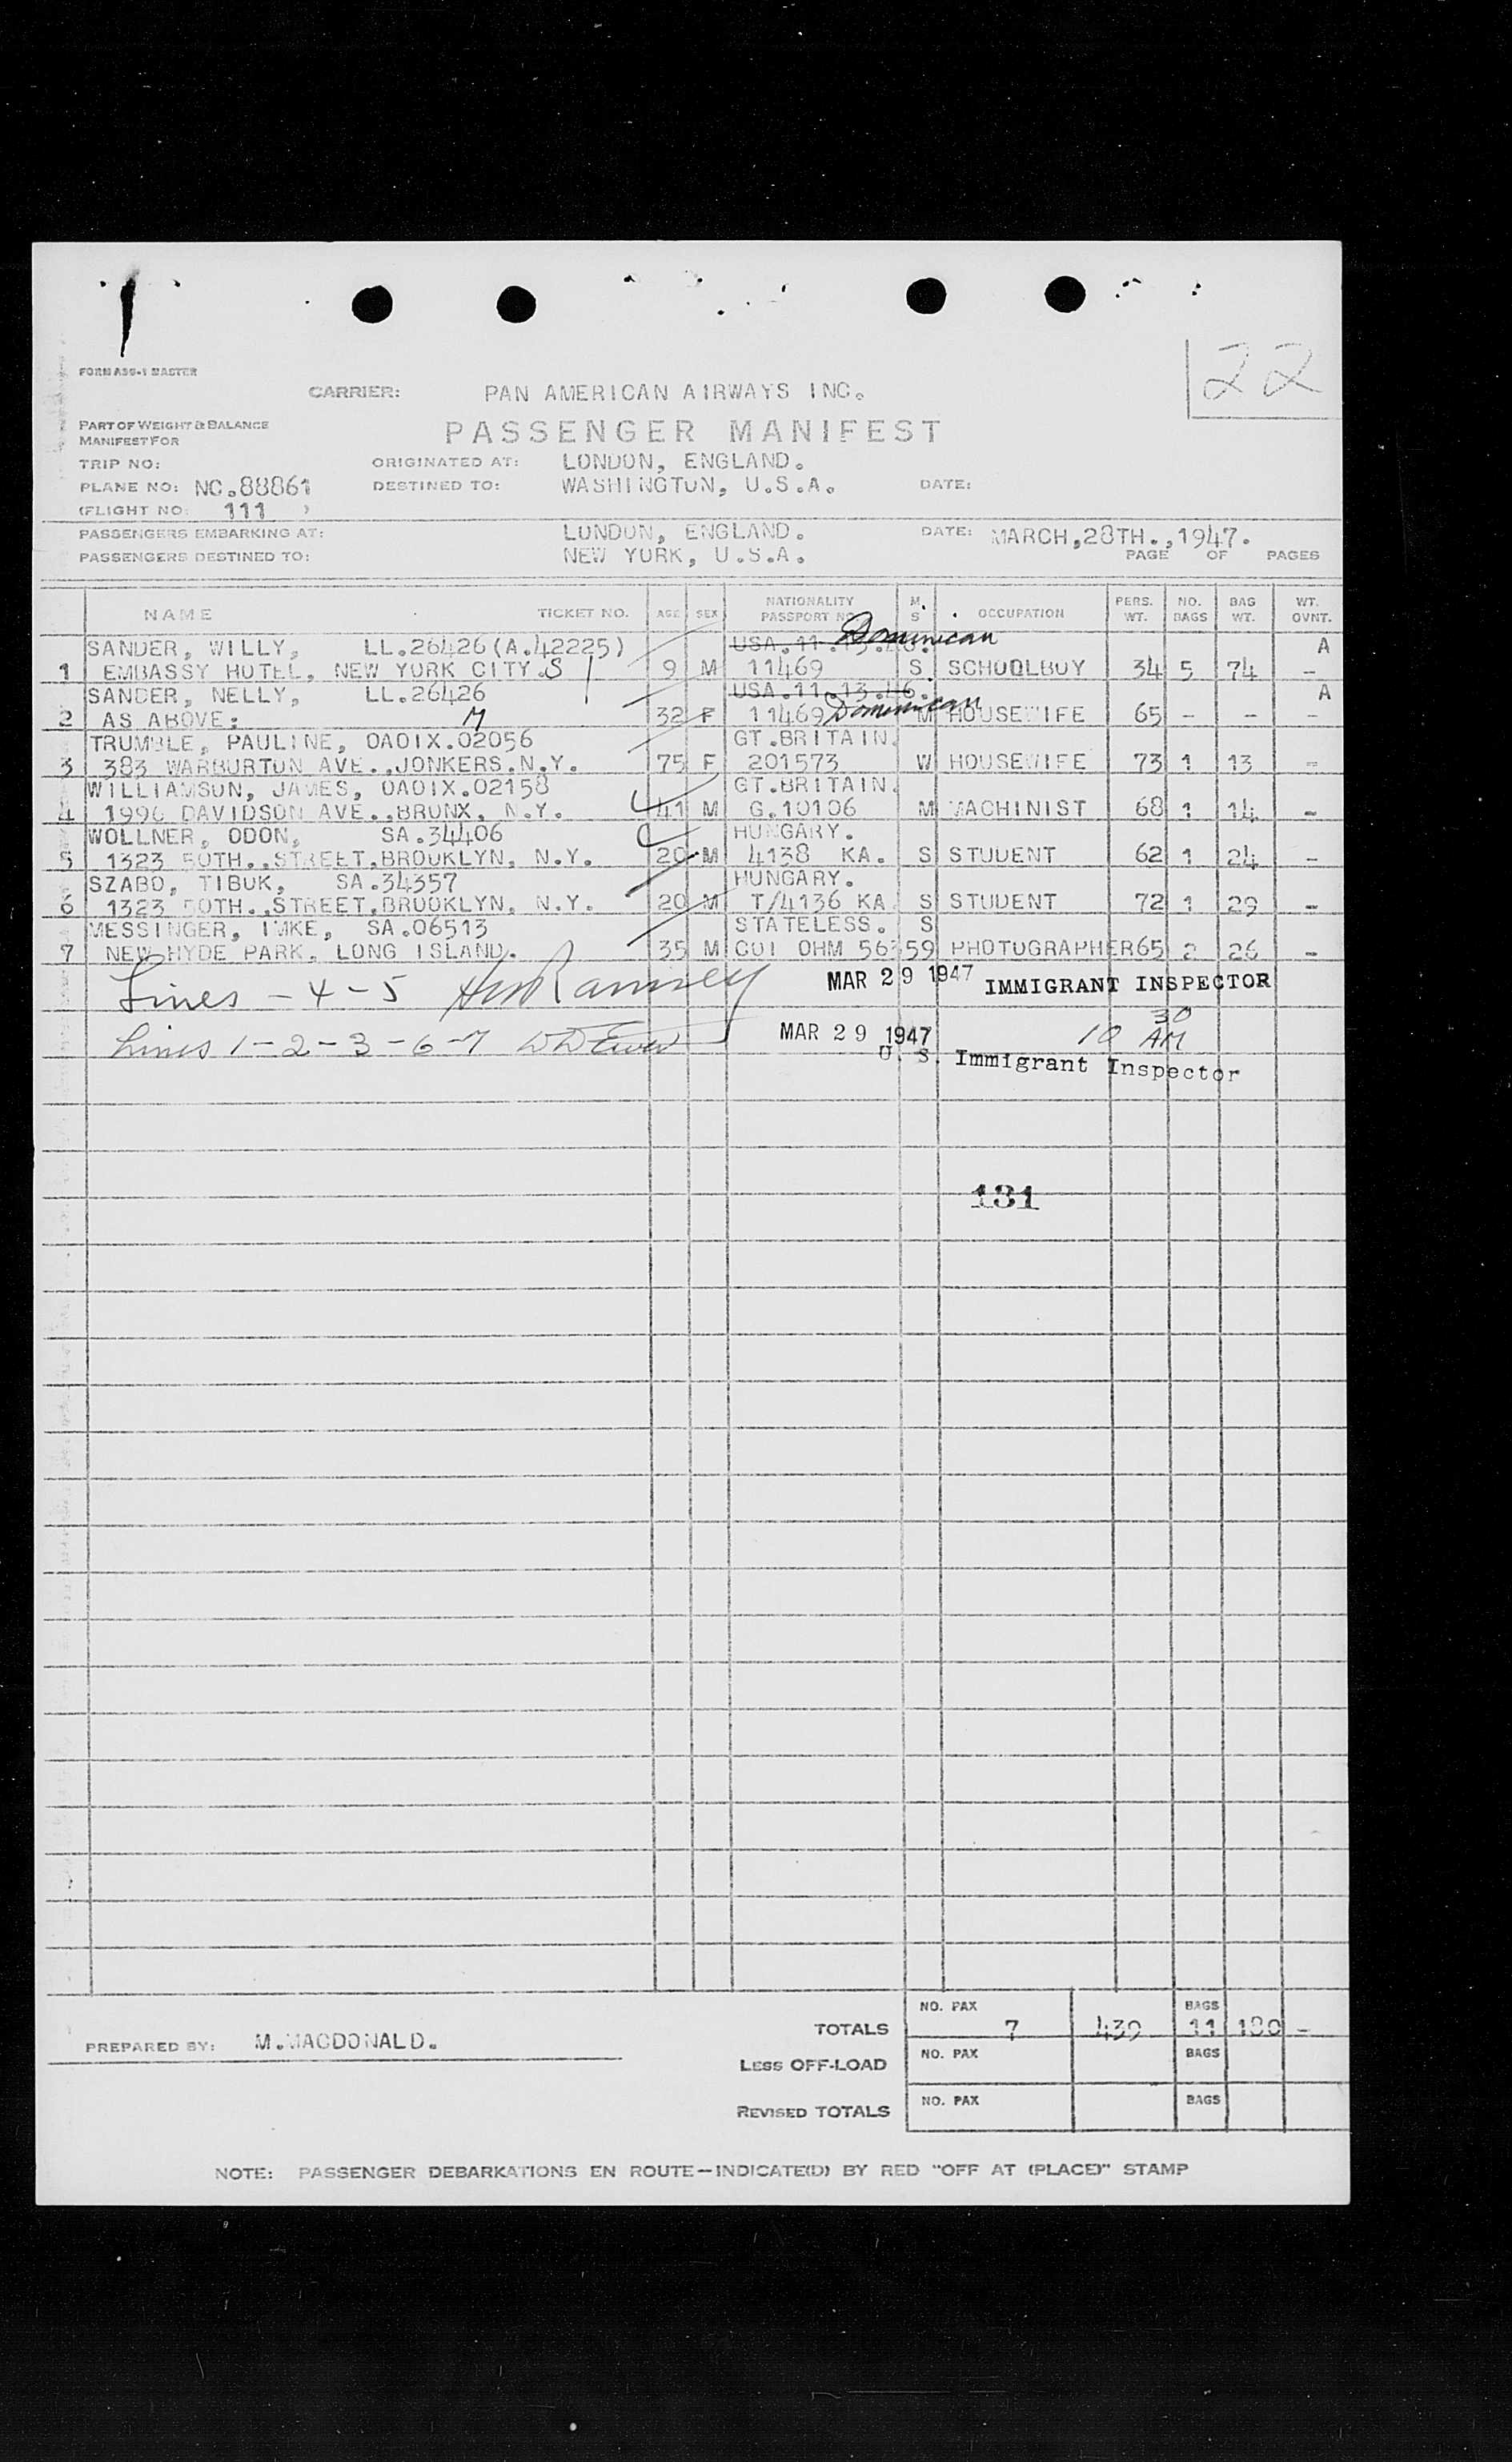 22
FORM ASG-1 MASTER
CARRIER: PAN AMERICAN AIRWAYS INC.
PART OF WEIGHT & BALANCE
MANIFEST FOR
PASSENGER MANIFEST
TRIP NO: ORIGINATED AT: LONDON, ENGLAND.
PLANE NO: NC.88861 DESTINED TO: WASHINGTON, U.S.A. DATE:
(FLIGHT NO: 111 )
PASSENGERS EMBARKING AT: LONDON, ENGLAND. DATE: MARCH,28TH.,1947.
PASSENGERS DESTINED TO: NEW YORK, U.S.A. PAGE OF PAGES
NAME TICKET NO. AGE SEX NATIONALITY PASSPORT NO. M. S OCCUPATION PERS. WT. NO. BAGS BAG WT. WT. OVNT.
SANDER, WILLY, LL.26426(A.42225) USA.11.13.46. Dominican A
1 EMBASSY HOTEL, NEW YORK CITY.S 9 M 11469 S SCHOOLBOY 34 5 74 –
SANDER, NELLY, LL.26426 USA.11.13.46. A
2 AS ABOVE: M 32 F 11469 Dominican M HOUSEWIFE 65 – – –
TRUMBLE, PAULINE, OAOIX.02056 GT.BRITAIN.
3 383 WARBURTON AVE.,JONKERS.N.Y. 75 F 201573 W HOUSEWIFE 73 1 13 –
WILLIAMSON, JAMES, OAOIX.02158 GT.BRITAIN.
4 1996 DAVIDSON AVE.,BRONX, N.Y. 41 M G.10106 M MACHINIST 68 1 14 –
WOLLNER, ODON, SA.34406 HUNGARY.
5 1323 50TH.,STREET,BROOKLYN, N.Y. 20 M 4138 KA. S STUDENT 62 1 24 –
SZABO, TIBUK, SA.34357 HUNGARY.
6 1323 50TH.,STREET,BROOKLYN, N.Y. 20 M T/4136 KA S STUDENT 72 1 29 –
MESSINGER, IMKE, SA.06513 STATELESS. S
7 NEW HYDE PARK, LONG ISLAND. 35 M COI OHM 56359 PHOTOGRAPHER 65 2 26 –
Lines – 4 – 5 Ramsey MAR 29 1947 IMMIGRANT INSPECTOR
Lines 1 – 2 – 3 – 6 – 7 MAR 29 1947 10 30 AM
U. S. Immigrant Inspector
131
PREPARED BY: M.MACDONALD.
TOTALS NO. PAX 7 439 BAGS 11 180 –
LESS OFF-LOAD NO. PAX BAGS
REVISED TOTALS NO. PAX BAGS
NOTE: PASSENGER DEBARKATIONS EN ROUTE—INDICATE(D) BY RED "OFF AT (PLACE)" STAMP